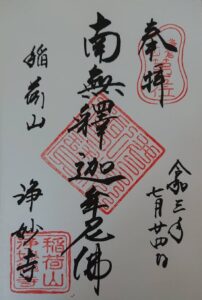 奉拝
令和三年
七月廿四日
南無釋迦牟尼佛
稲荷山
浄妙寺
稲荷山
浄妙寺